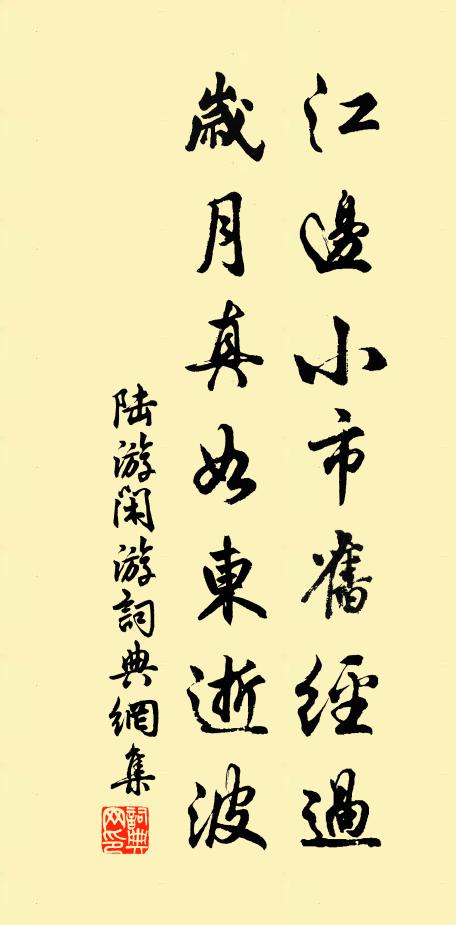 江邊小市舊經過
歲月真如東逝波
陸游閑游詞典網集
詞典網印